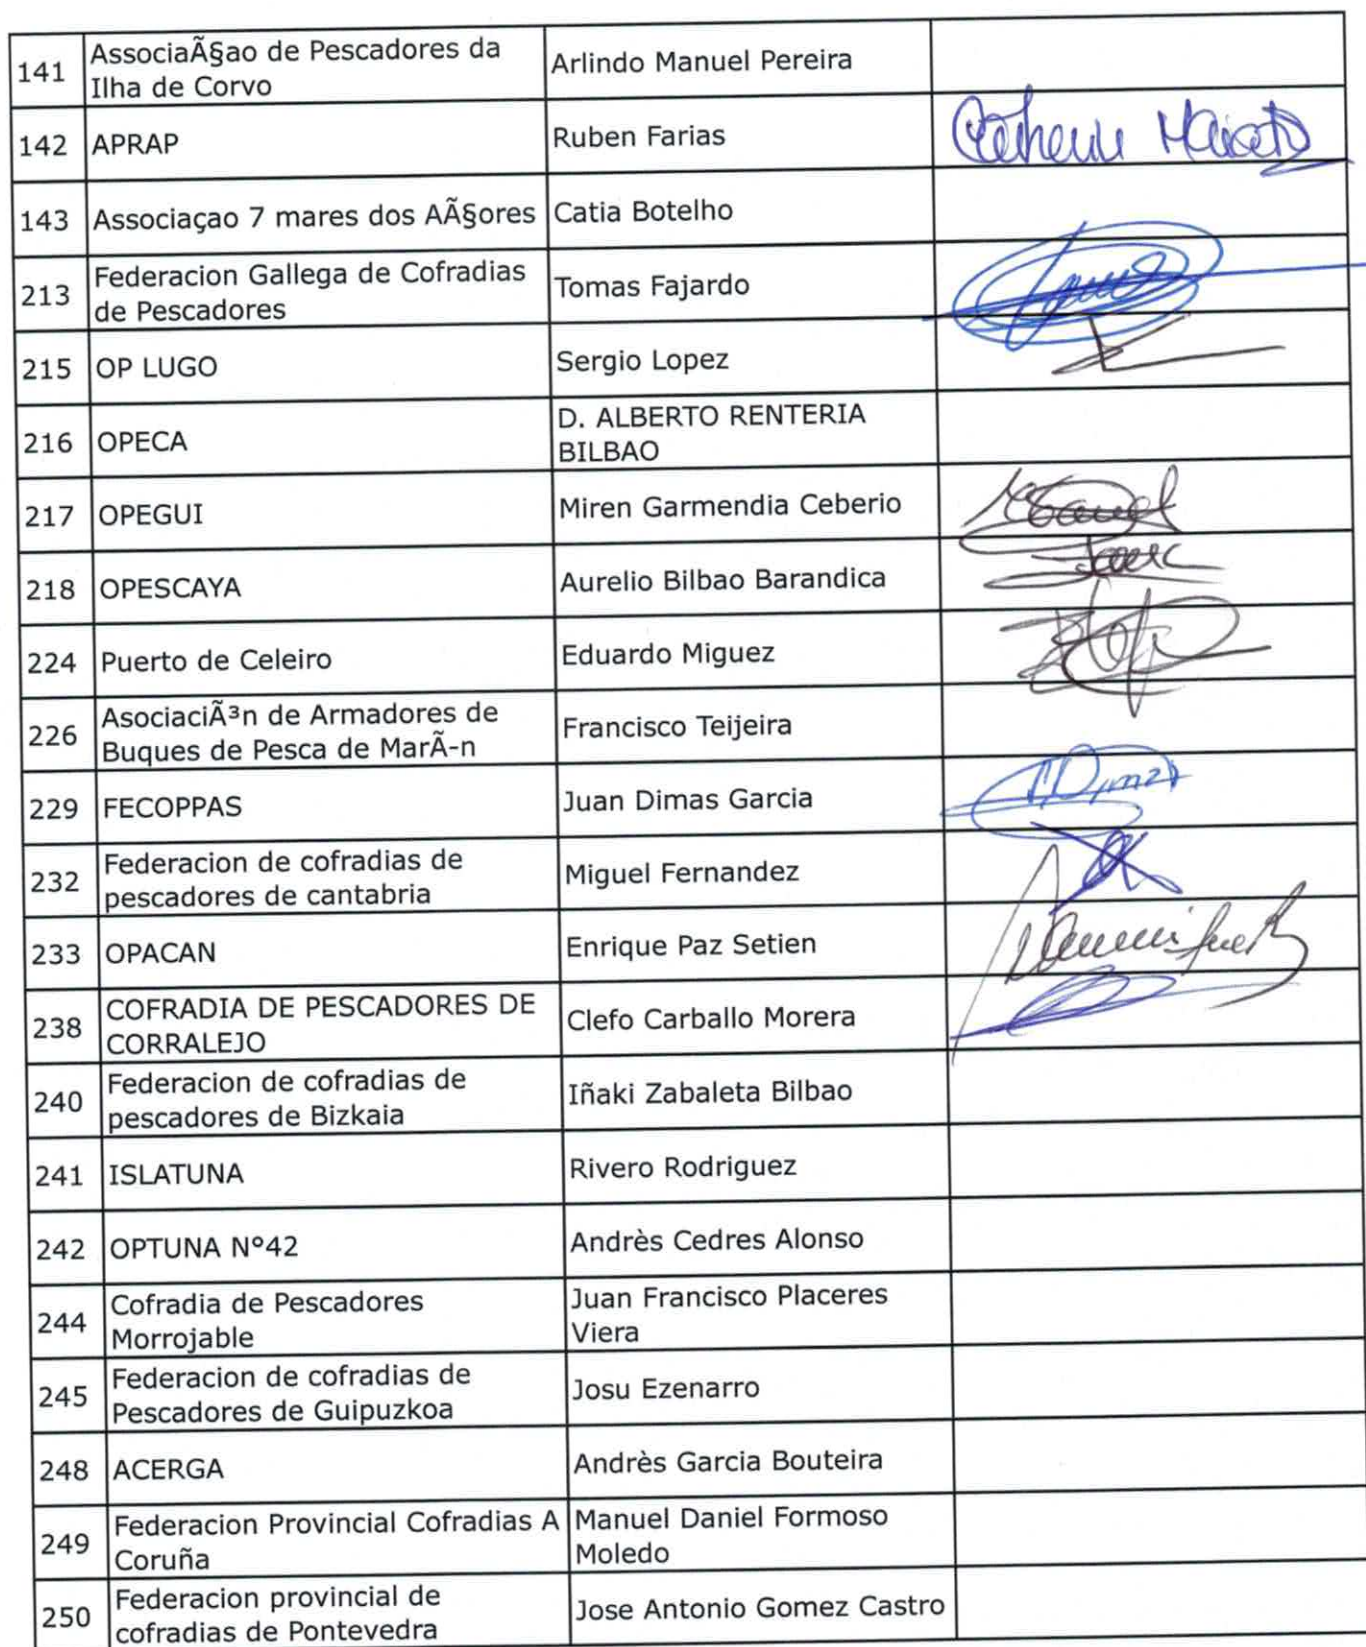 141 AssociaÃ§ao de Pescadores da
Ilha de Corvo
Arlindo Manuel Pereira
142 APRAP Ruben Farias
143 Associaçao 7 mares dos AÃ§ores Catia Botelho
213 Federacion Gallega de Cofradias
de Pescadores
Tomas Fajardo
215 OP LUGO Sergio Lopez
216 OPECA D. ALBERTO RENTERIA
BILBAO
217 OPEGUI Miren Garmendia Ceberio
218 OPESCAYA Aurelio Bilbao Barandica
224 Puerto de Celeiro Eduardo Miguez
226 AsociaciÃ³n de Armadores de
Buques de Pesca de MarÃ-n
Francisco Teijeira
229 FECOPPAS Juan Dimas Garcia
232 Federacion de cofradias de
pescadores de cantabria
Miguel Fernandez
233 OPACAN Enrique Paz Setien
238 COFRADIA DE PESCADORES DE
CORRALEJO
Clefo Carballo Morera
240 Federacion de cofradias de
pescadores de Bizkaia
Iñaki Zabaleta Bilbao
241 ISLATUNA Rivero Rodriguez
242 OPTUNA Nº42 Andrès Cedres Alonso
244 Cofradia de Pescadores
Morrojable
Juan Francisco Placeres
Viera
245 Federacion de cofradias de
Pescadores de Guipuzkoa
Josu Ezenarro
248 ACERGA Andrès Garcia Bouteira
249 Federacion Provincial Cofradias A
Coruña
Manuel Daniel Formoso
Moledo
250 Federacion provincial de
cofradias de Pontevedra
Jose Antonio Gomez Castro